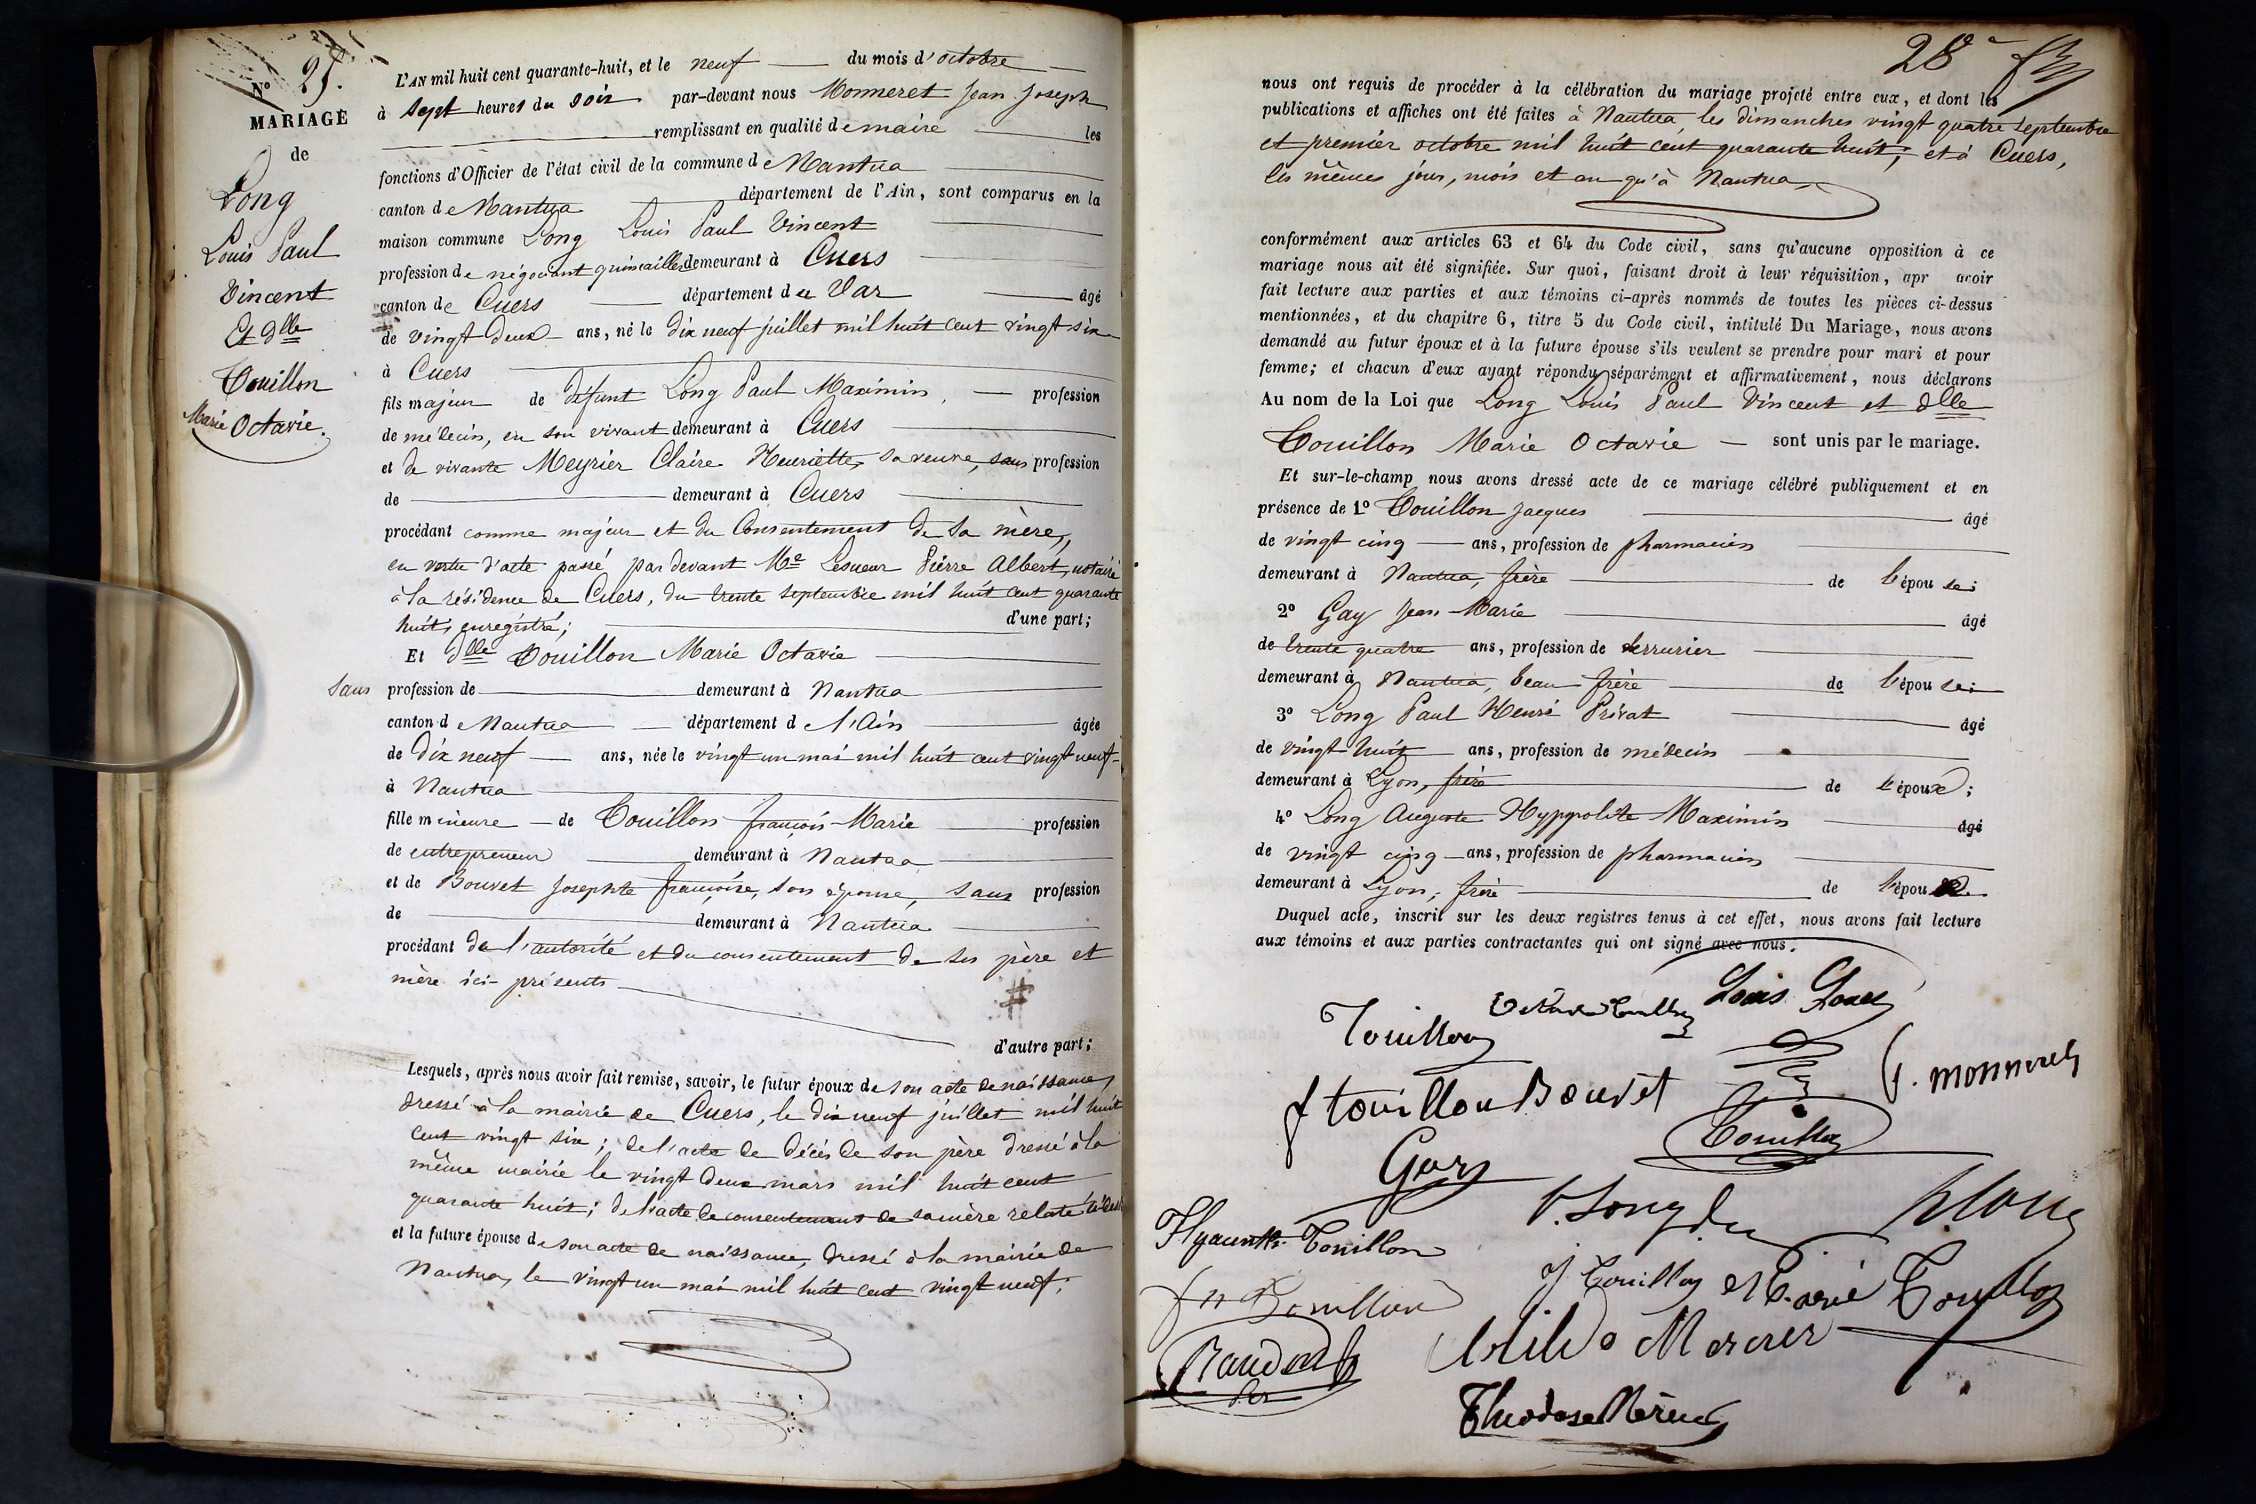 N° 25.
MARIAGE
de
Long
Louis Paul
Vincent
Et dlle
Touillon
Marie Octavie.
L'AN mil huit cent quarante-huit, et le neuf du mois d'octobre
à sept heures du soir par-devant nous Monneret Jean Joseph
remplissant en qualité de maire les
fonctions d'Officier de l'état civil de la commune de Nantua
canton de Nantua département de l'Ain, sont comparus en la
maison commune Long Louis Paul Vincent
profession de négociant quincailler demeurant à Cuers
canton de Cuers département du Var âgé
de vingt deux ans, né le dix neuf juillet mil huit cent vingt six
à Cuers
fils majeur de défunt Long Paul Maximin, profession
de médecin, en son vivant demeurant à Cuers
et de vivante Meyrier Claire Henriette, sa veuve, sans profession
de demeurant à Cuers
procédant comme majeur et du Consentement de sa mère,
en vertu d'acte passé par devant Me Lesueur Pierre Albert, notaire
à la résidence de Cuers, du trente septembre mil huit cent quarante
huit, enregistré; d'une part;
Et dlle Touillon Marie Octavie
sans profession de demeurant à Nantua
canton de Nantua département de l'Ain âgée
de dix neuf ans, née le vingt un mai mil huit cent vingt neuf
à Nantua
fille mineure de Touillon françois Marie profession
de entrepreneur demeurant à Nantua
et de Bouvet Josephte françoise, son épouse, sans profession
de demeurant à Nantua
procédant de l'autorité et du consentement de ses père et
mère ici présents
#
d'autre part;
Lesquels, après nous avoir fait remise, savoir, le futur époux de son acte de naissance,
dressé à la mairie de Cuers, le dix neuf juillet mil huit
cent vingt six; de l'acte de décès de son père dressé à la
même mairie le vingt deux mars mil huit cent
quarante huit; de l'acte de consentement de sa mère relaté
et la future épouse de son acte de naissance, dressé à la mairie de
Nantua, le vingt un mai mil huit cent vingt neuf;
28e
nous ont requis de procéder à la célébration du mariage projeté entre eux, et dont les
publications et affiches ont été faites à Nantua, les dimanches vingt quatre septembre
et premier octobre mil huit cent quarante huit; et à Cuers,
les mêmes jour, mois et an qu'à Nantua,
conformément aux articles 63 et 64 du Code civil, sans qu'aucune opposition à ce
mariage nous ait été signifiée. Sur quoi, faisant droit à leur réquisition, apr avoir
fait lecture aux parties et aux témoins ci-après nommés de toutes les pièces ci-dessus
mentionnées, et du chapitre 6, titre 5 du Code civil, intitulé Du Mariage, nous avons
demandé au futur époux et à la future épouse s'ils veulent se prendre pour mari et pour
femme; et chacun d'eux ayant répondu séparément et affirmativement, nous déclarons
Au nom de la Loi que Long Louis Paul Vincent et dlle
Touillon Marie Octavie sont unis par le mariage.
Et sur-le-champ nous avons dressé acte de ce mariage célébré publiquement et en
présence de 1° Touillon Jacques âgé
de vingt cinq ans, profession de pharmacien
demeurant à Nantua, frère de l'épouse;
2° Gay Jean Marie âgé
de trente quatre ans, profession de serrurier
demeurant à Nantua, beau frère de l'épouse;
3° Long Paul Henri Privat âgé
de vingt huit ans, profession de médecin
demeurant à Lyon, frère de l'époux;
4° Long Auguste Hyppolite Maximin âgé
de vingt cinq ans, profession de pharmacien
demeurant à Lyon, frère de l'époux.
Duquel acte, inscrit sur les deux registres tenus à cet effet, nous avons fait lecture
aux témoins et aux parties contractantes qui ont signé avec nous.
Octavie Touillon Louis Long
Touillon
J. Monneret
f touillon Bouvet
Touillon
Gay
P. Long H. Long
Hyacinthe Touillon
J Touillon Marie Touillon
Touillon
Mercier
Théodose Mercier